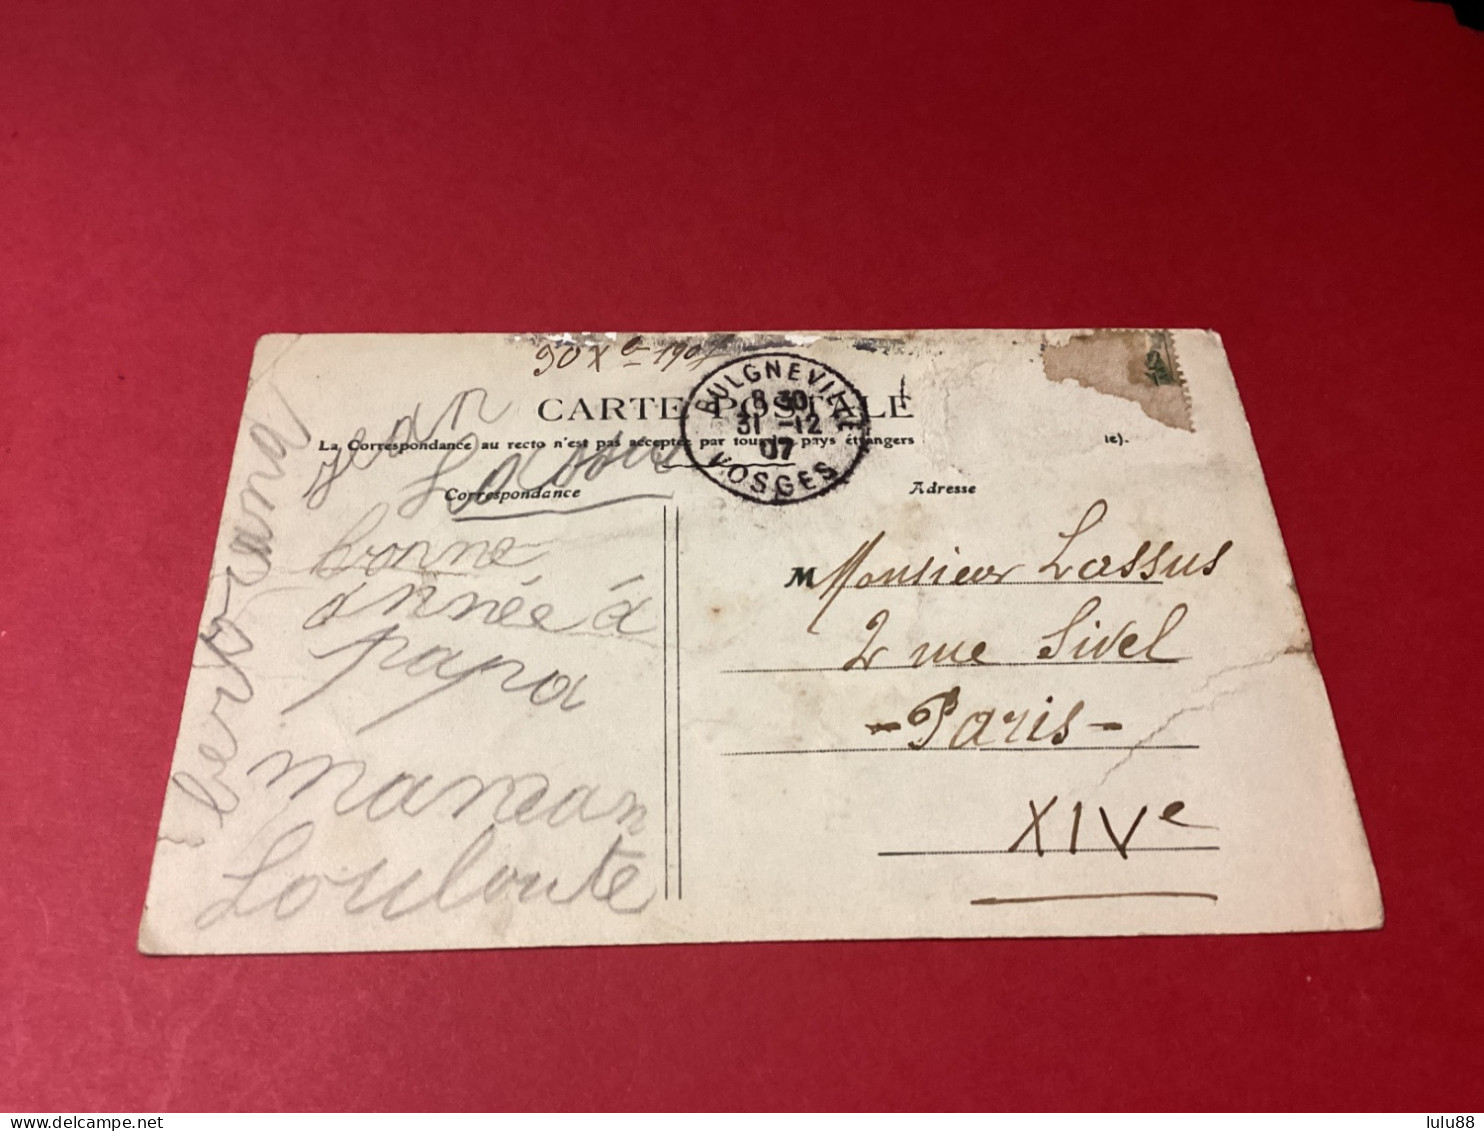 30 Xe 1907
CARTE POSTALE
La Correspondance au recto n'est pas acceptée par tous les pays étrangers
ie).
BULGNEVILLE
8 30
31 -12
07
VOSGES
Correspondance
Adresse
Jean
Lassus
bonne
année à
papa
maman
Louloute
M Monsieur Lassus
2 rue Sivel
- Paris -
XIVe
lulu88